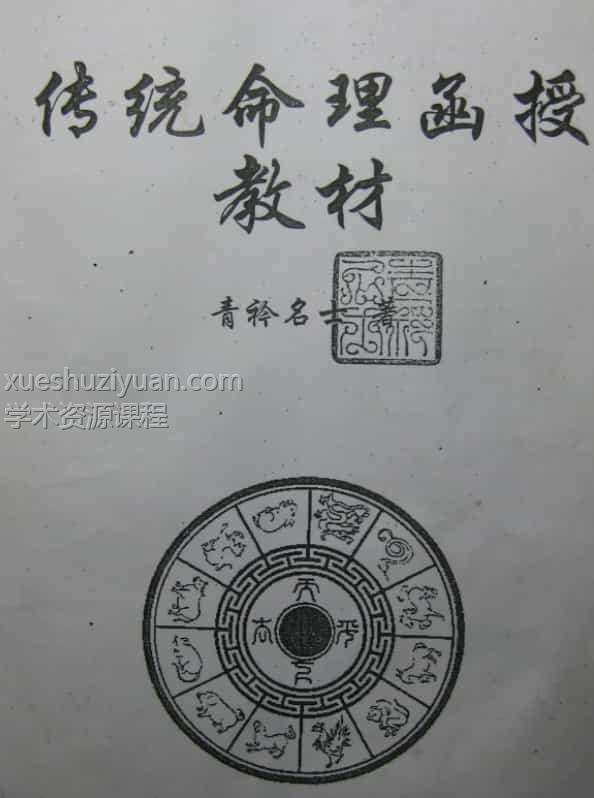 传统命理函授
教材
青衿名士 著
xueshuziyuan.com
学术资源课程